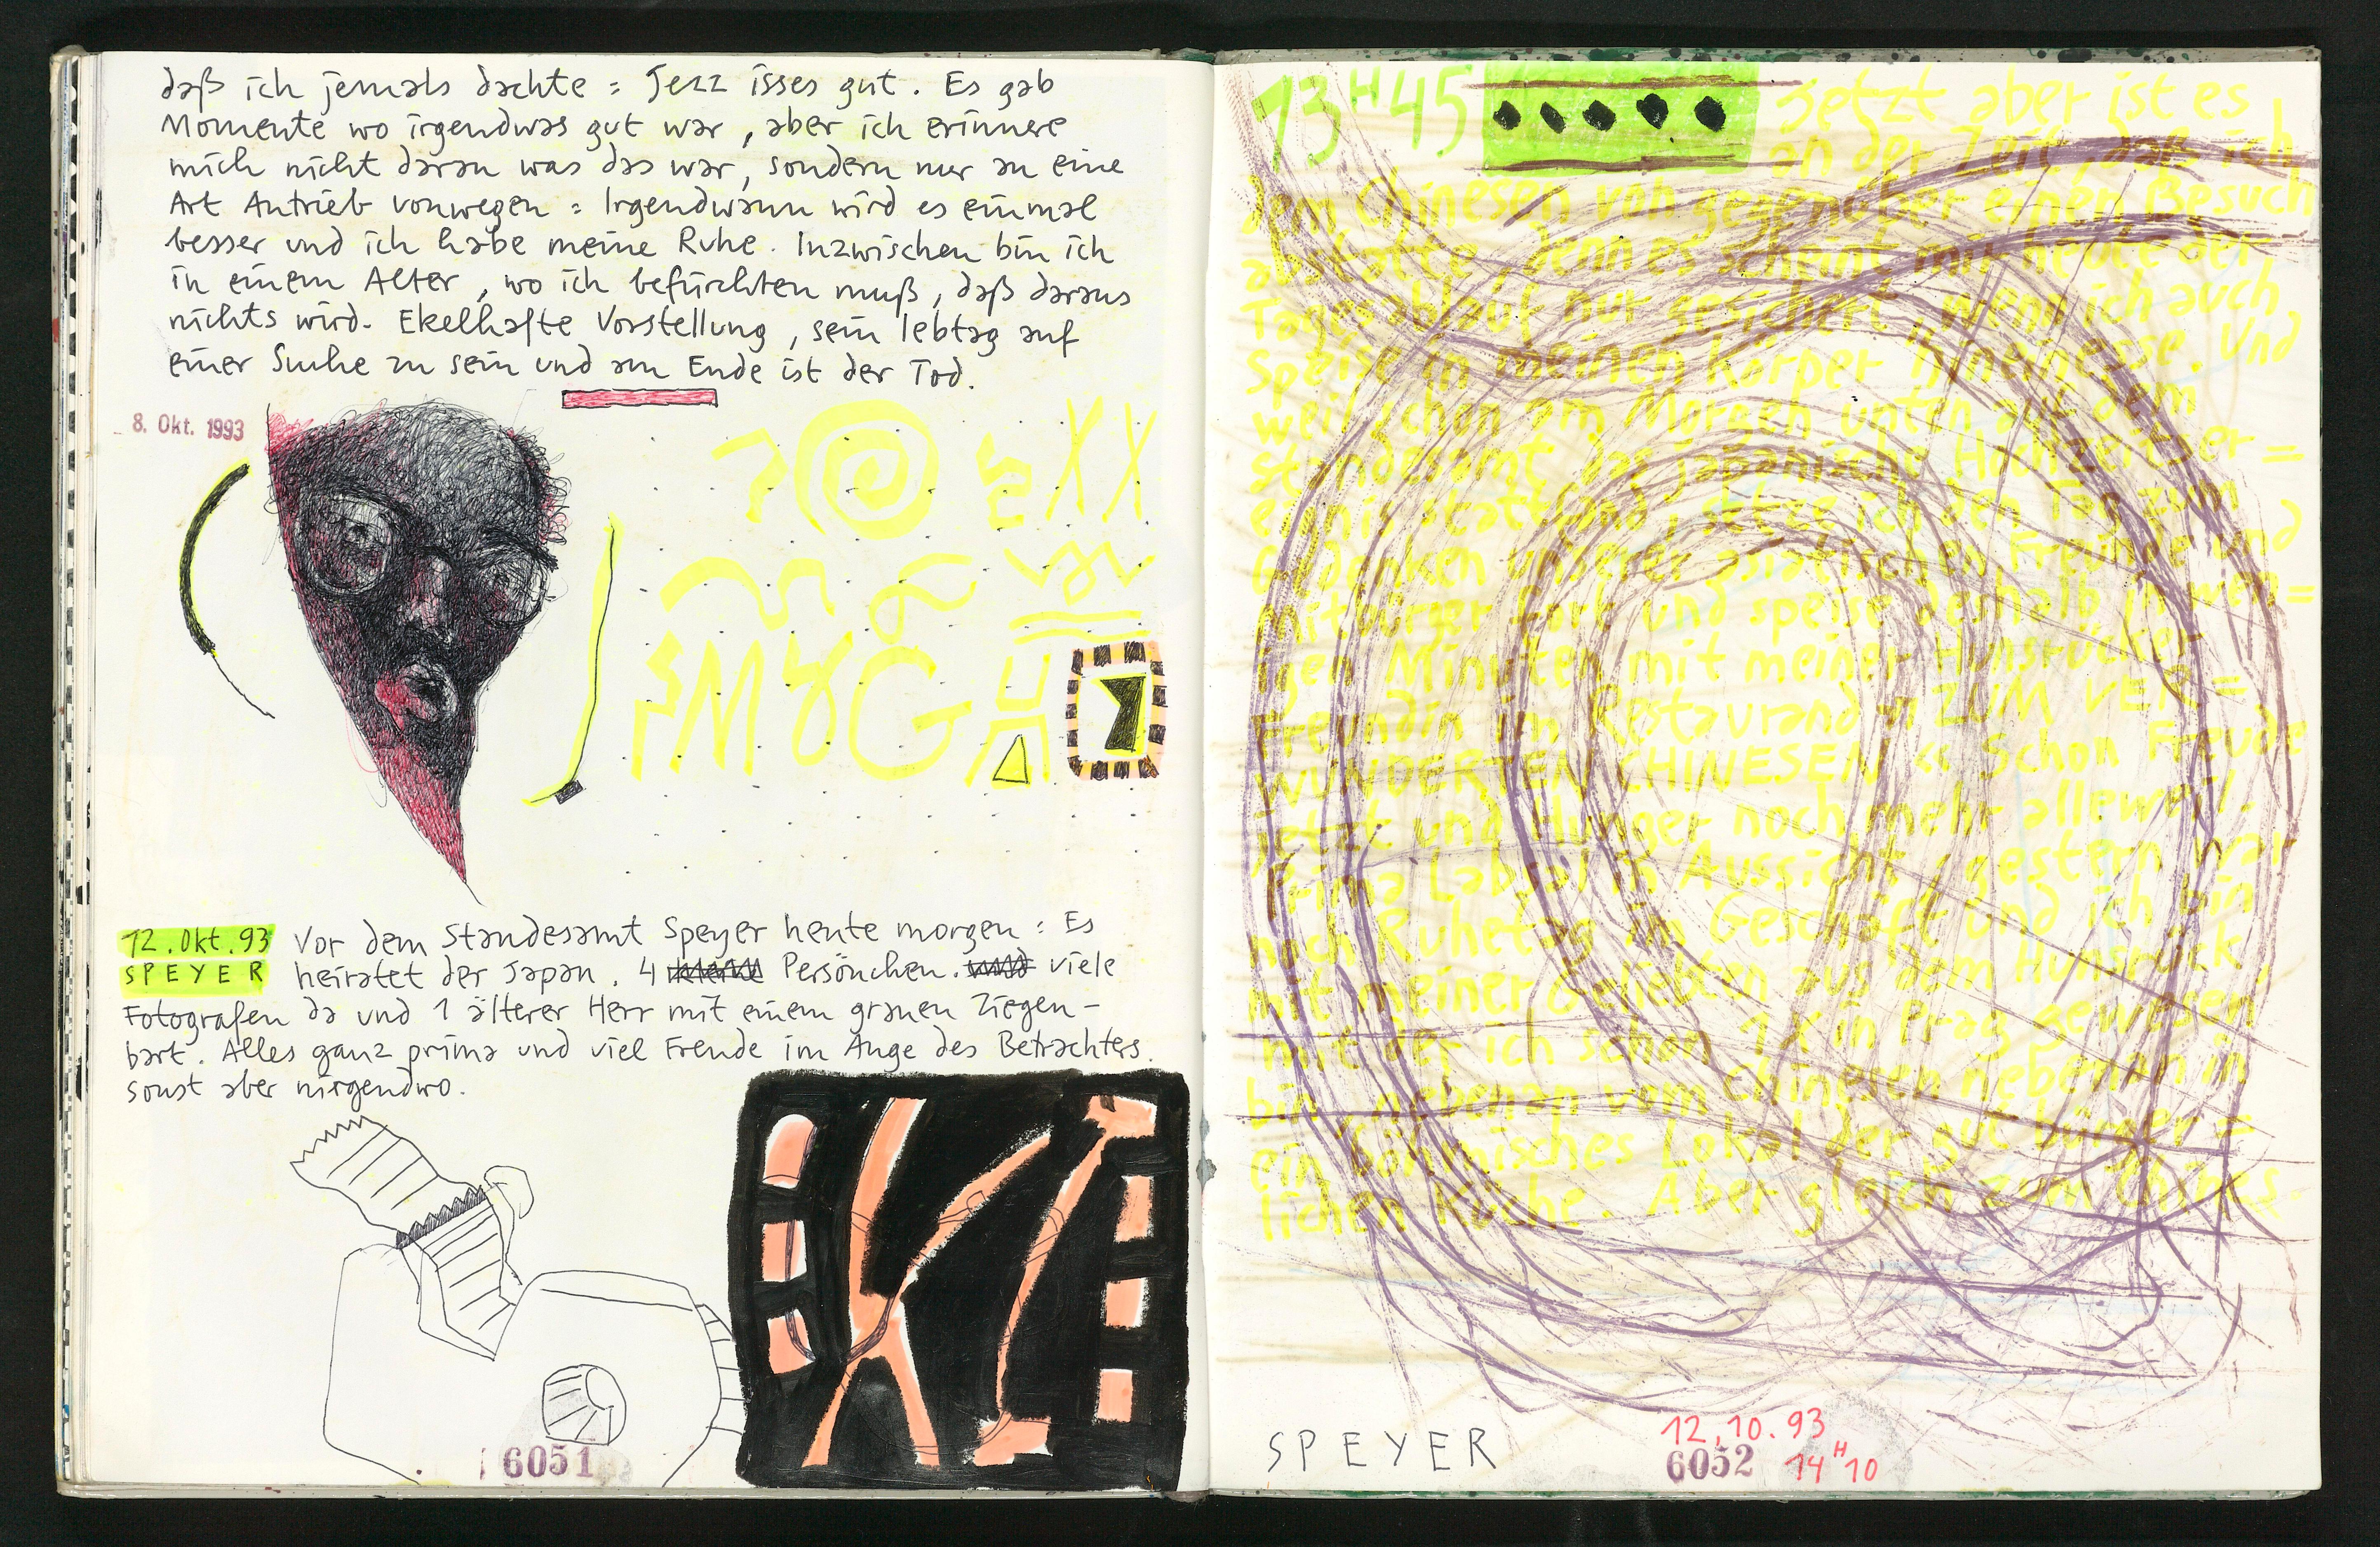 daß ich jemals dachte = Jezz isses gut. Es gab
Momente wo irgendwas gut war, aber ich erinnere
mich nicht daran was das war, sondern nur an eine
Art Antrieb vonwegen = Irgendwann wird es einmal
besser und ich habe meine Ruhe. Inzwischen bin ich
in einem Alter, wo ich befürchten muß, daß daraus
nichts wird. Ekelhafte Vorstellung, sein lebtag auf
einer Suche zu sein und am Ende ist der Tod.
8. Okt. 1993
12.Okt.93 Vor dem Standesamt Speyer heute morgen: Es
SPEYER heiratet der Japan. 4 Persönchen. viele
Fotografen da und 1 älterer Herr mit einem grauen Ziegen-
bart. Alles ganz prima und viel Freude im Auge des Betrachters.
sonst aber nirgendwo.
6051
13H45 Jetzt aber ist es
an der Zeit, daß ich
dem Chinesen von gegenüber einen Besuch
abstatte, denn es scheint mir heute der
Tagesablauf nur gesichert, wenn ich auch
Speise in meinen Körper hineinesse. Und
weil schon am Morgen unten auf dem
Standesamt das japanische Hochzeitser=
eignis stattfand, setze ich den Tag zum
Gedenken unserer asiatischen Freunde und
Mitbürger fort und speise deshalb in wen=
igen Minuten mit meiner Hunsrücker=
Freundin im Restaurand » ZUM VER=
WUNDERTEN CHINESEN « Schon Freude
jetzt und Hunger noch mehr alleweil.
Prima Labsal in Aussicht, gestern war
noch Ruhetag im Geschäft und ich bin
mit meiner Geliebten aus dem Hunsrück,
mit der ich schon 1 X in Prag gewesen
bin, nebenan vom Chinesen nebenan in
ein böhmisches Lokal der gut bürger=
lichen Küche. Aber gleich zum Chines.
SPEYER
12.10.93
6052 14H10